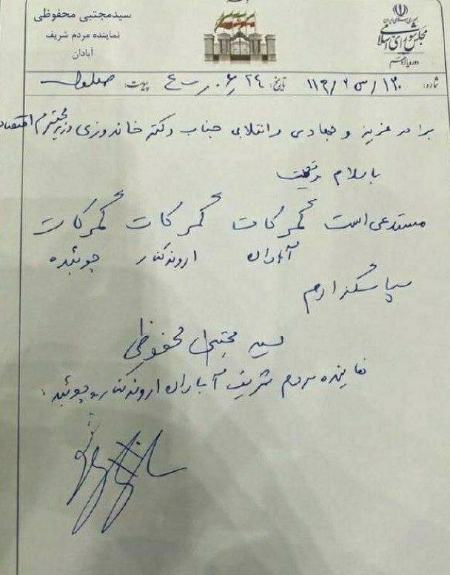 سیدمجتبی محفوظی
نماینده مردم شریف
آبادان
مجلس شورای اسلامی
شماره:
تاریخ:
پیوست:
برادر عزیز و جهادی و انقلابی جناب دکتر خاندوزی وزیر محترم اقتصاد
باسلام و تحیت
مستدعی است گمرکات گمرکات گمرکات
آبادان اروندکنار چوئبده
سپاسگزارم
سید مجتبی محفوظی
نماینده مردم شریف آبادان اروندکنار و چوئبده